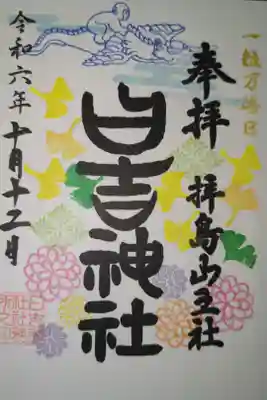 一粒万倍日
奉拝 拝島山王社
日吉神社
令和六年十月十二日